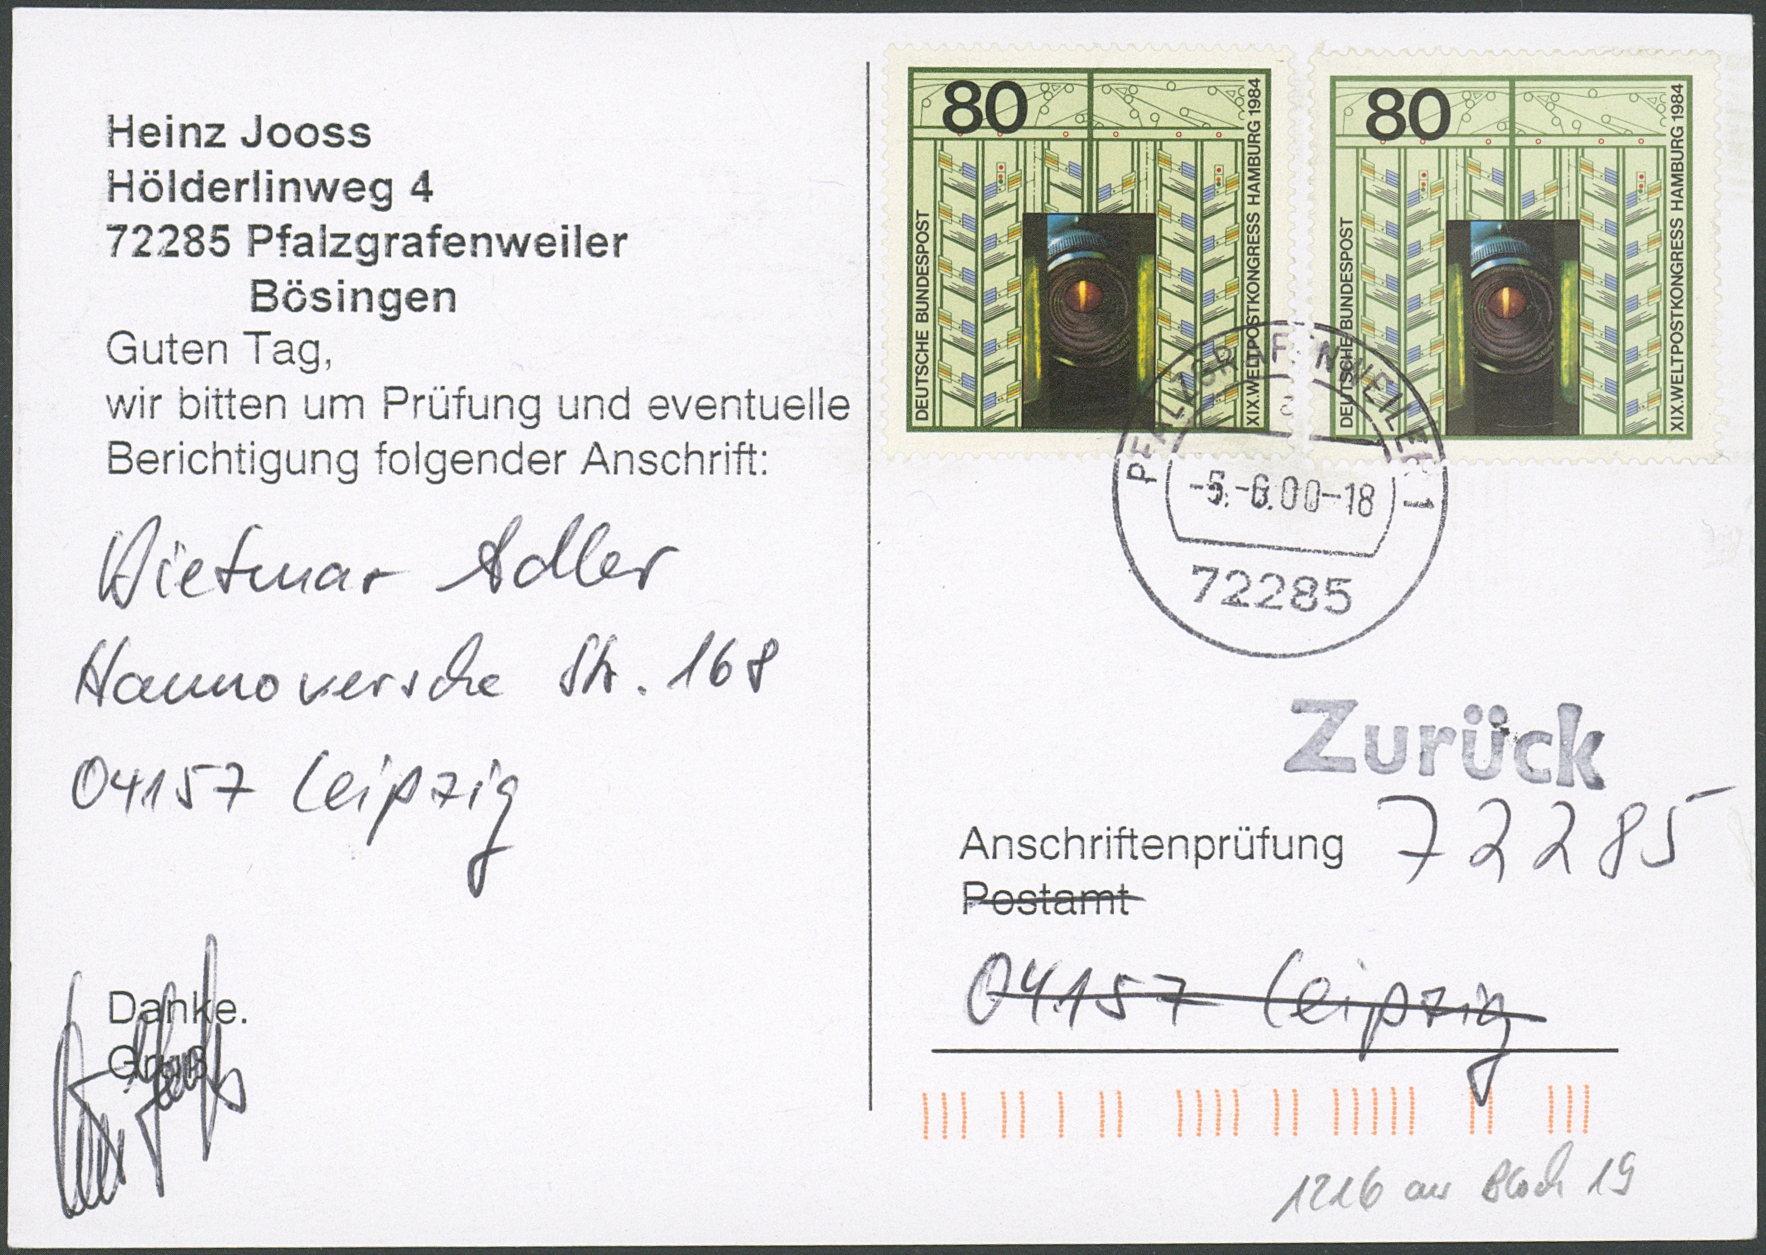 Heinz Jooss
Hölderlinweg 4
72285 Pfalzgrafenweiler
Bösingen
Guten Tag,
wir bitten um Prüfung und eventuelle
Berichtigung folgender Anschrift:
Dietmar Adler
Hannoversche Str. 168
04157 Leipzig
Danke.
Gruß
80
DEUTSCHE BUNDESPOST
XIX.WELTPOSTKONGRESS HAMBURG 1984
80
DEUTSCHE BUNDESPOST
XIX.WELTPOSTKONGRESS HAMBURG 1984
PFALZGRAFENWEILER 1
-5.-6.00-18
72285
Zurück
72285
Anschriftenprüfung
Postamt
04157 Leipzig
1216 aus Block 19